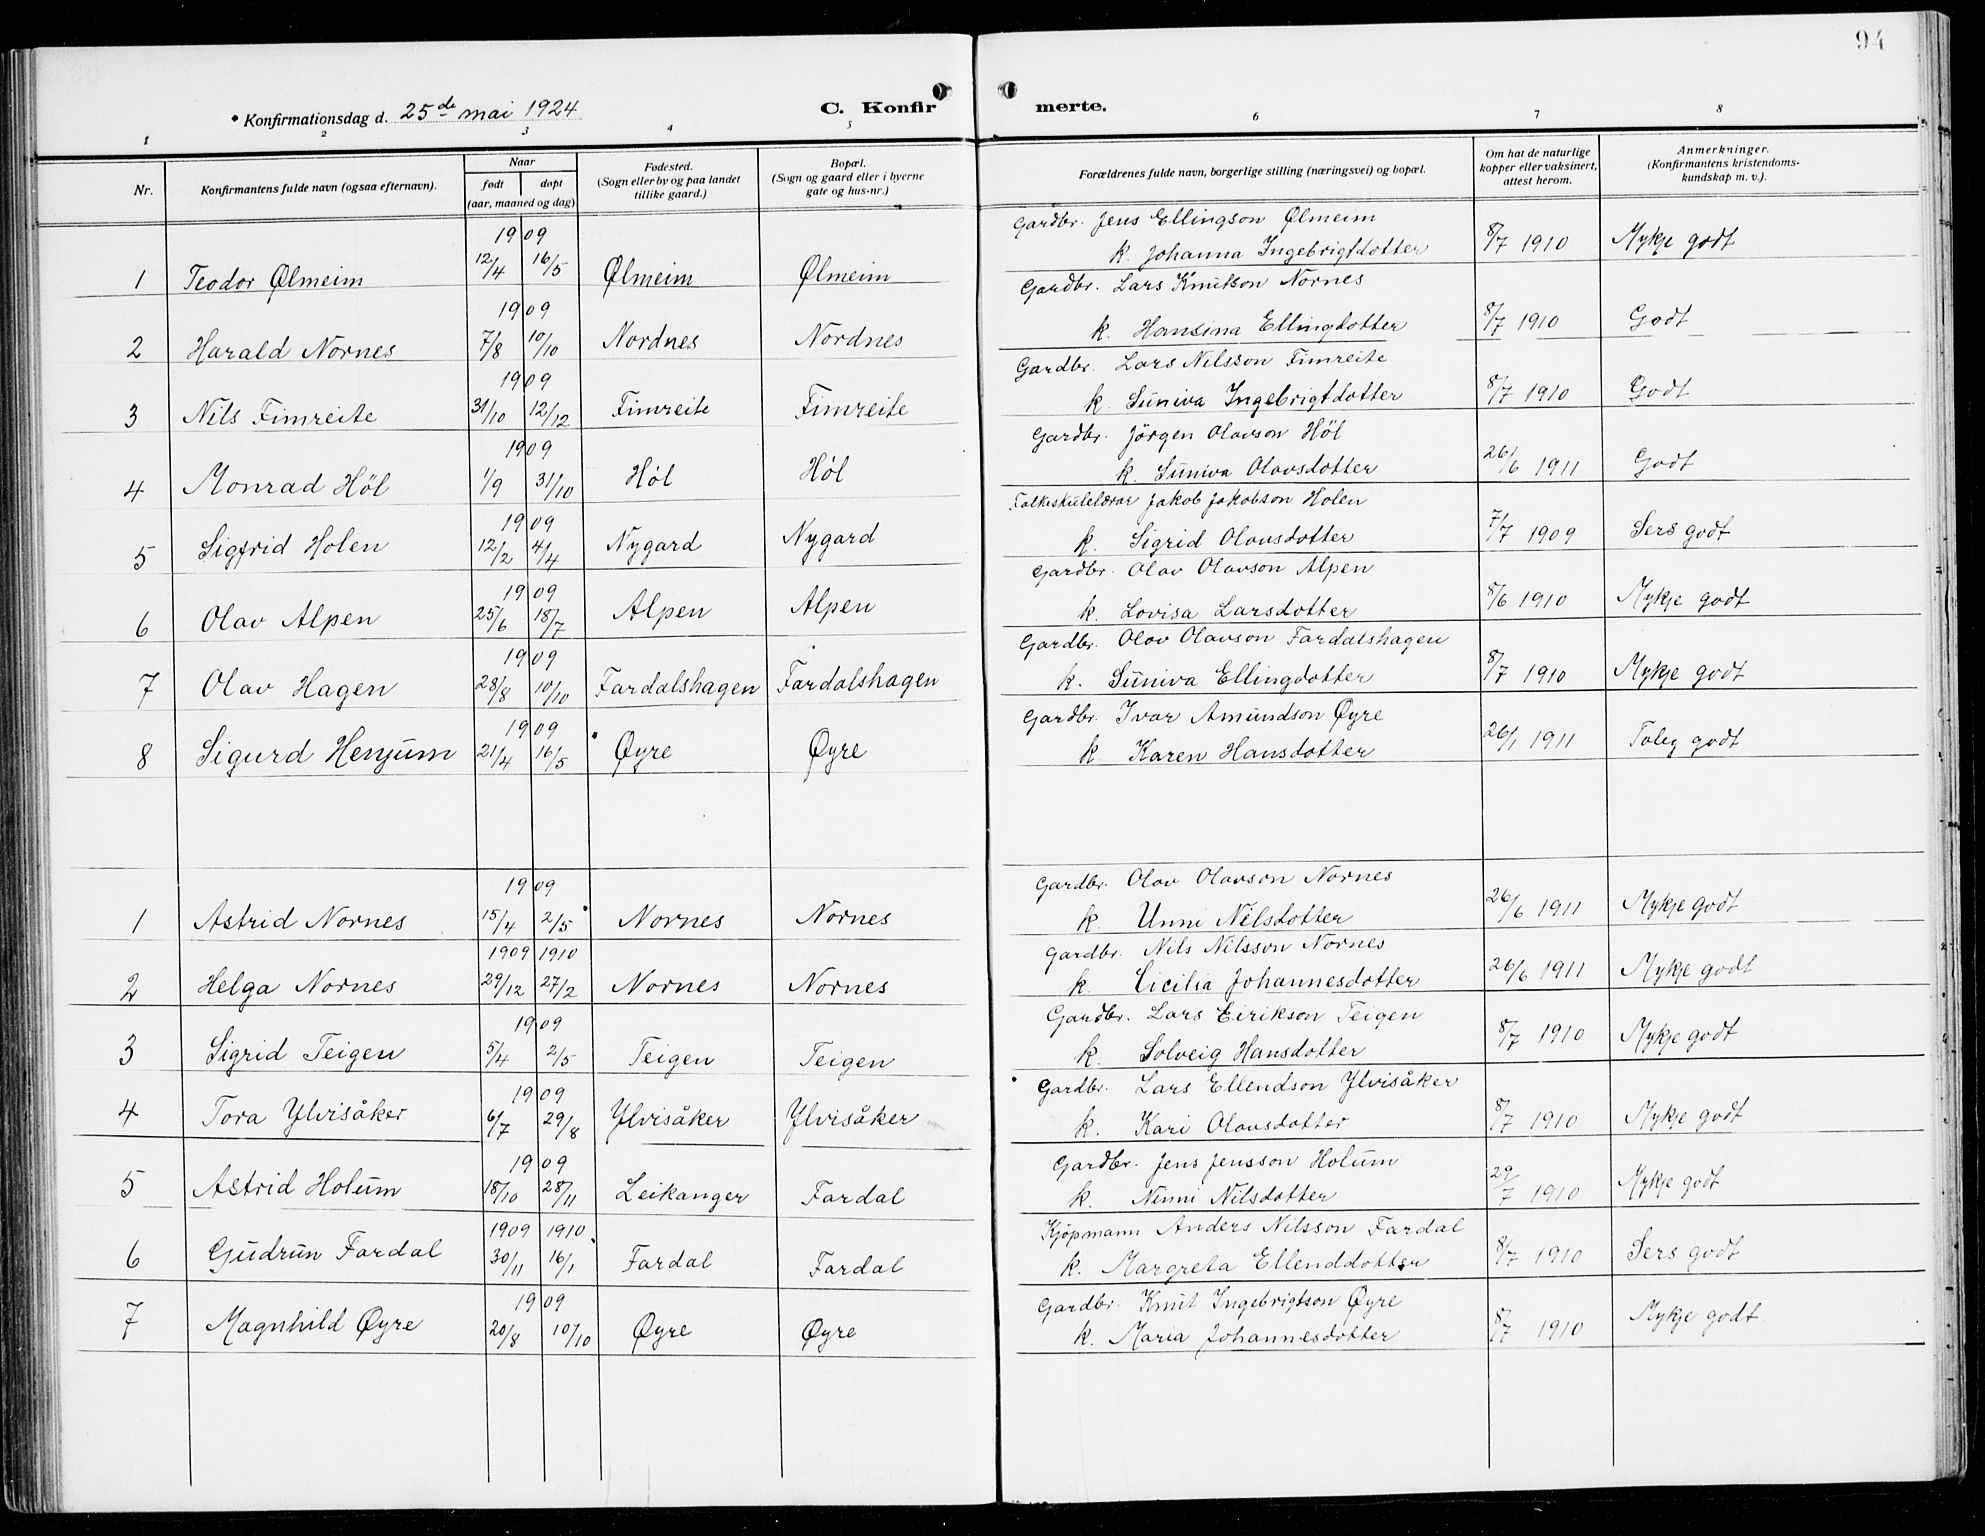 94
* Konfirmationsdag d. 25de mai 1924 C. Konfirmerte.
1 2 3 4 5 6 7 8
Nr. Konfirmantens fulde navn (ogsaa efternavn). Naar født døpt (aar, maaned og dag) Fødested. (Sogn eller by og paa landet tillike gaard.) Bopæl. (Sogn og gaard eller i byerne gate og hus-nr.) Forældrenes fulde navn, borgerlige stilling (næringsvei) og bopæl. Om hat de naturlige kopper eller vaksinert, attest herom. Anmerkninger. (Konfirmantens kristendoms-kundskap m. v.).
1909 Gardbr. Jens Ellingson Ølmeim
1 Teodor Ølmeim 12/4 16/5 Ølmeim Ølmeim k. Johanna Ingebrigtdotter 8/7 1910 Mykje godt
1909 Gardbr. Lars Knutson Nornes
2 Harald Nornes 7/8 10/10 Nordnes Nordnes k. Hansina Ellingdotter 8/7 1910 Godt
1909 Gardbr. Lars Nilsson Fimreite
3 Nils Fimreite 31/10 12/12 Fimreite Fimreite k. Suniva Ingebrigtdotter 8/7 1910 Godt
1909 Gardbr. Jörgen Olavson Höl
4 Monrad Höl 1/9 31/10 Höl Höl k. Suniva Olavsdotter 26/6 1911 Godt
1909 Folkeskulelærar Jakob Jakobson Holen
5 Sigfrid Holen 12/2 4/4 Nygard Nygard k. Sigrid Olavsdotter 7/7 1909 Sers godt
1909 Gardbr. Olav Olavson Alpen
6 Olav Alpen 25/6 18/7 Alpen Alpen k. Lovisa Larsdotter 8/6 1910 Mykje godt
1909 Gardbr. Olav Olavson Fardalshagen
7 Olav Hagen 28/8 10/10 Fardalshagen Fardalshagen k. Suniva Ellingdotter 8/7 1910 Mykje godt
1909 Gardbr. Ivar Amundson Øyre
8 Sigurd Henjum 21/4 16/5 Øyre Øyre k. Karen Hansdotter 26/1 1911 Toleg godt
1909 Gardbr. Olav Olavson Nornes
1 Astrid Nornes 15/4 2/5 Nornes Nornes k. Unni Nilsdotter 26/6 1911 Mykje godt
1909 1910 Gardbr. Nils Nilsson Nornes
2 Helga Nornes 29/12 27/2 Nornes Nornes k. Cicilia Johannesdotter 26/6 1911 Mykje godt
1909 Gardbr. Lars Eirikson Teigen
3 Sigrid Teigen 5/4 2/5 Teigen Teigen k. Solveig Hansdotter 8/7 1910 Mykje godt
1909 Gardbr. Lars Ellendson Ylvisåker
4 Tora Ylvisåker 6/7 29/8 Ylvisåker Ylvisåker k. Kari Olavsdotter 8/7 1910 Mykje godt
1909 Gardbr. Jens Jensson Holum
5 Astrid Holum 18/10 28/11 Leikanger Fardal k. Ninni Nilsdotter 29/7 1910 Mykje godt
1909 1910 Kjöpmann Anders Nilsson Fardal
6 Gudrun Fardal 30/11 16/1 Fardal Fardal k. Margreta Ellenddotter 8/7 1910 Sers godt
1909 Gardbr. Knut Ingebrigtson Øyre
7 Magnhild Øyre 20/8 10/10 Øyre Øyre k. Maria Johannesdotter 8/7 1910 Mykje godt.